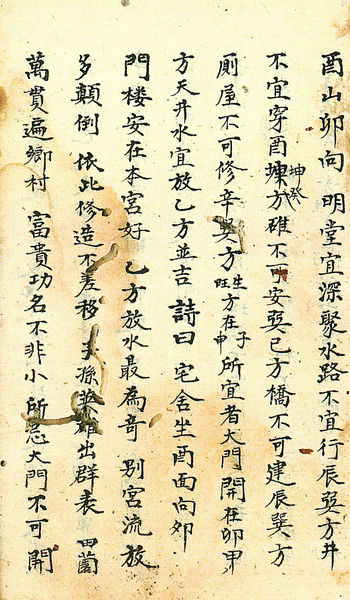 酉山卯向 明堂宜深聚水路不宜行辰巽方井
不宜穿酉坤癸方碓不可安巽巳方橋不可建辰巽方
廁屋不可修辛巽方生旺方在子申所宜者大門開在卯甲
方天井水宜放乙方並吉 詩曰 宅舍坐酉面向卯
門楼安在本宮好 乙方放水最為奇 別宮流放
多顛倒 依此修造不差移 子孫英雄出群表 田
萬貫遍鄉村 富貴功名不非小 所忌大門不可開